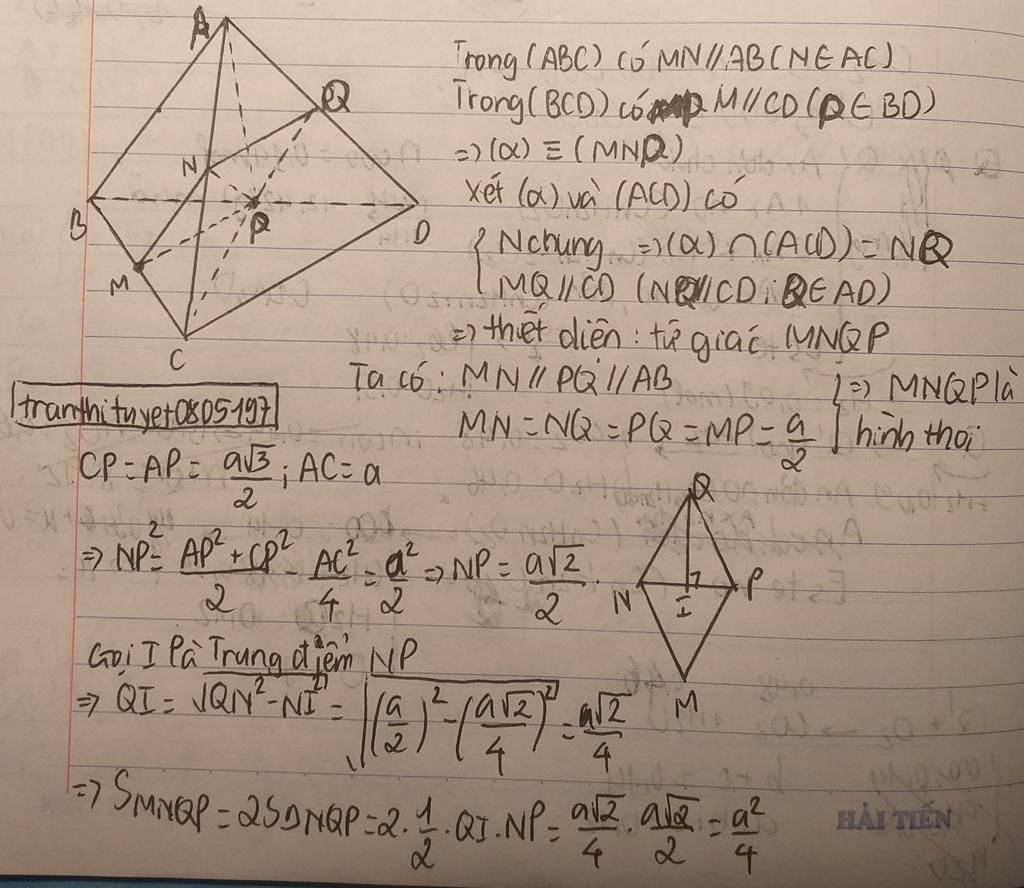 A
Q
N
B
P
D
M
C
Trong (ABC) có MN // AB (N ∈ AC)
Trong (BCD) có MP // CD (P ∈ BD)
=> (α) ≡ (MNP)
Xét (α) và (ACD) có
{ N chung => (α) ∩ (ACD) = NQ
MQ // CD (NQ // CD ; Q ∈ AD)
=> thiết diện : tứ giác MNQP
Ta có : MN // PQ // AB } => MNQP là
MN = NQ = PQ = MP = a/2 hình thoi
tranthituyet0805197
CP = AP = a√3/2 ; AC = a
=> NP² = (AP² + CP²)/2 AC²/4 = a²/2 => NP = a√2/2 .
Q
N
I
P
M
Gọi I là Trung điểm NP
=> QI = √(QN² - NI²) = √((a/2)² - (a√2/4)²) = a√2/4
=> S MNQP = 2SΔNQP = 2 . 1/2 . QI . NP = a√2/4 . a√2/2 = a²/4
HẢI TIẾN